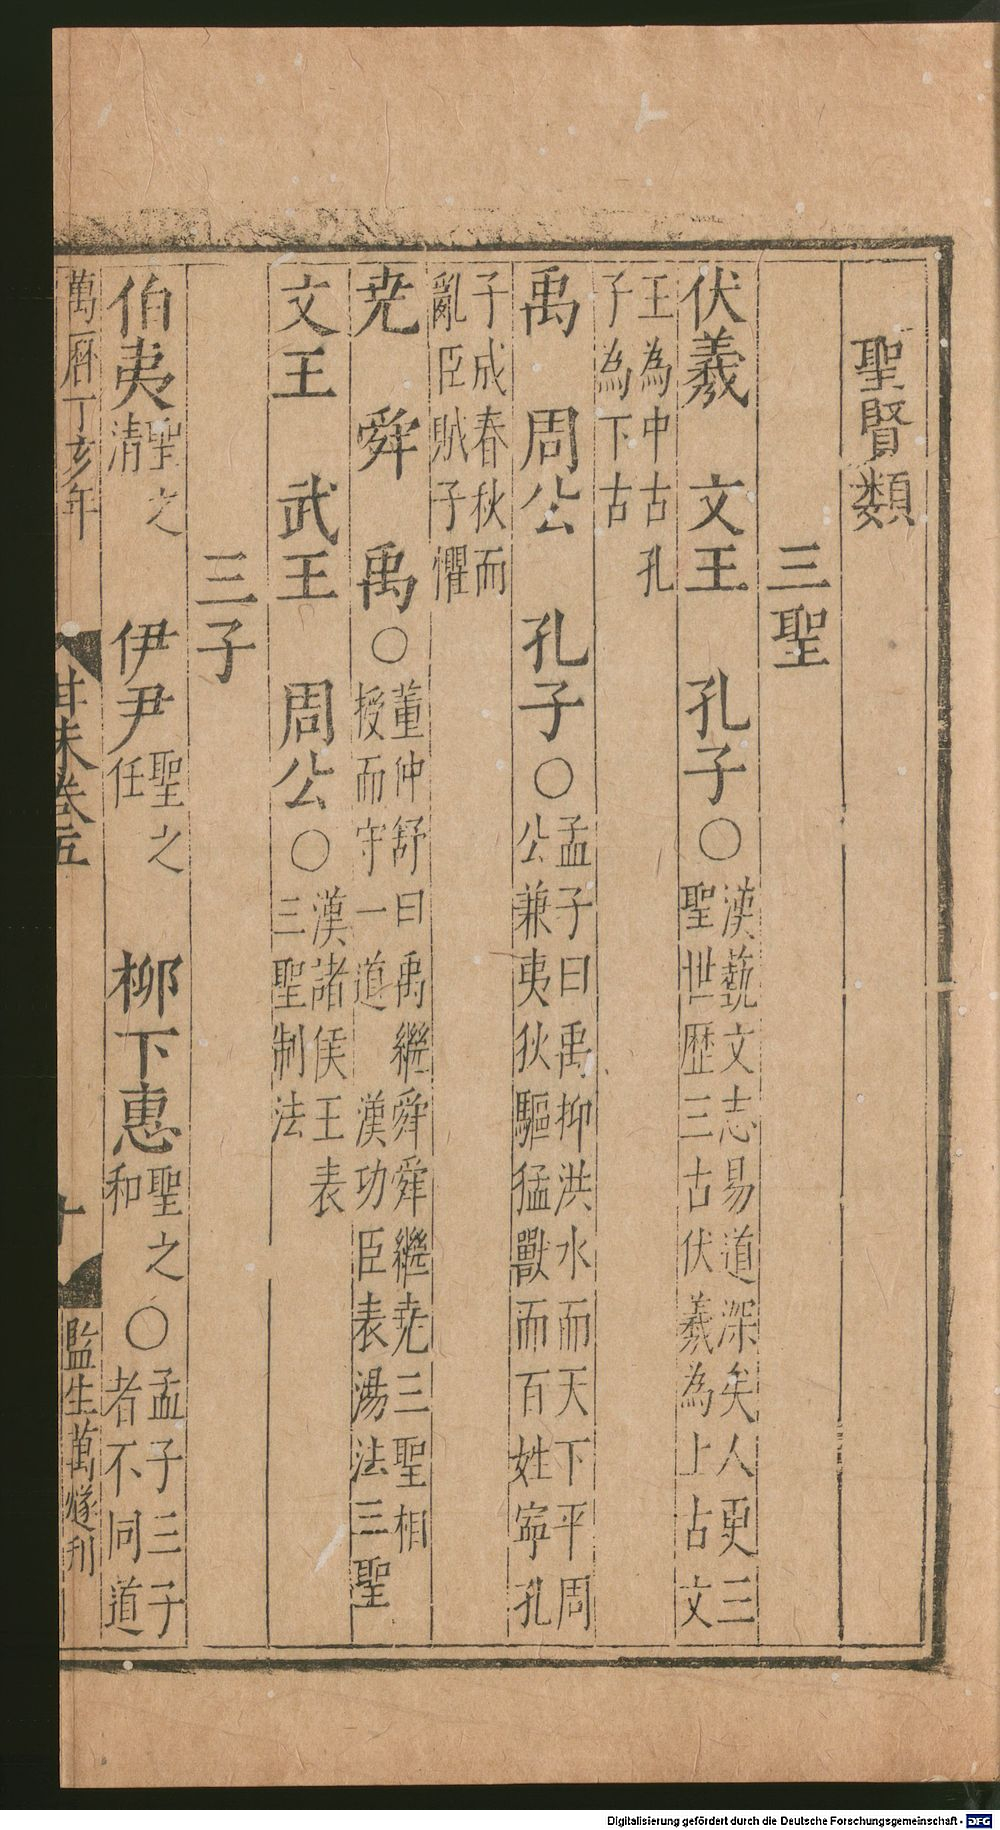 聖賢類
三聖
伏羲　文王　孔子○漢藝文志易道深矣人更三
聖世歷三古伏羲為上古文
王為中古孔
子為下古
禹　周公　孔子○孟子曰禹抑洪水而天下平周
公兼夷狄驅猛獸而百姓寧孔
子成春秋而
亂臣賊子懼
尭　舜　禹○董仲舒曰禹繼舜舜繼尭三聖相
授而守一道　漢功臣表湯法三聖
文王　武王　周公○漢諸侯王表
三聖制法
三子
伯夷聖之清　伊尹聖之任　柳下惠聖之和○孟子三子
者不同道
萬曆丁亥年
卷五
監生萬燧刊
Digitalisierung gefördert durch die Deutsche Forschungsgemeinschaft - DFG